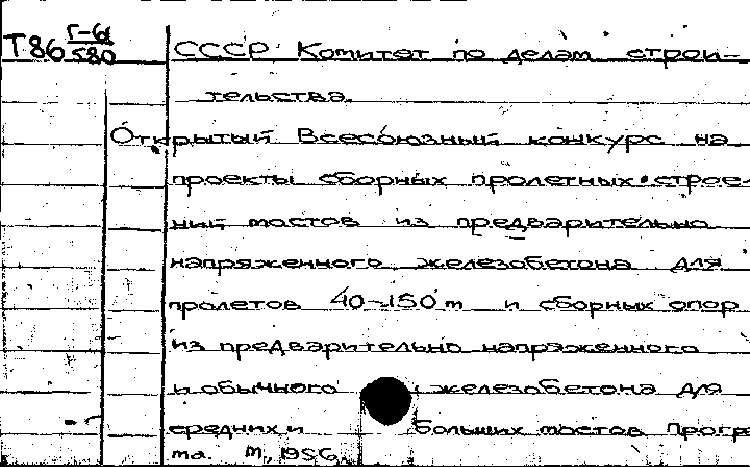 Т86 Г-61/580
СССР. Комитет по делам строи-
тельства.
Открытый Всесоюзный конкурс на
проекты сборных пролетных строе-
ний мостов из предварительно
напряженного железобетона для
пролетов 40-150 м и сборных опор
из предварительно напряженного
и обычного железобетона для
средних и больших мостов Прогр
ма. М, 1956.